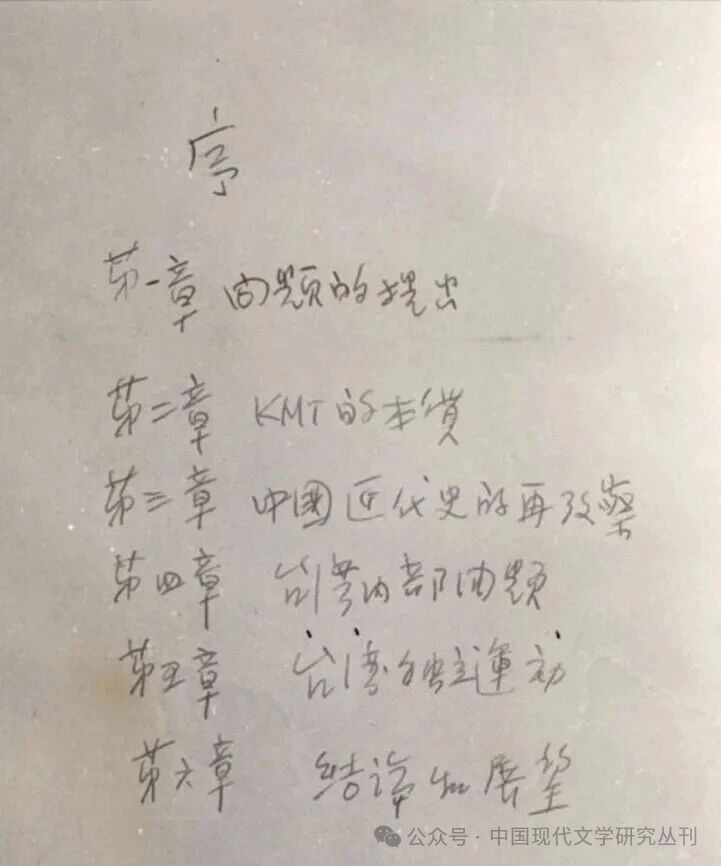 序
第一章 问題的提出
第二章 KMT的本質
第三章 中國近代史的再考察
第四章 台湾内部问題
第五章 台湾独立運动
第六章 结論和展望
公众号·中国现代文学研究丛刊